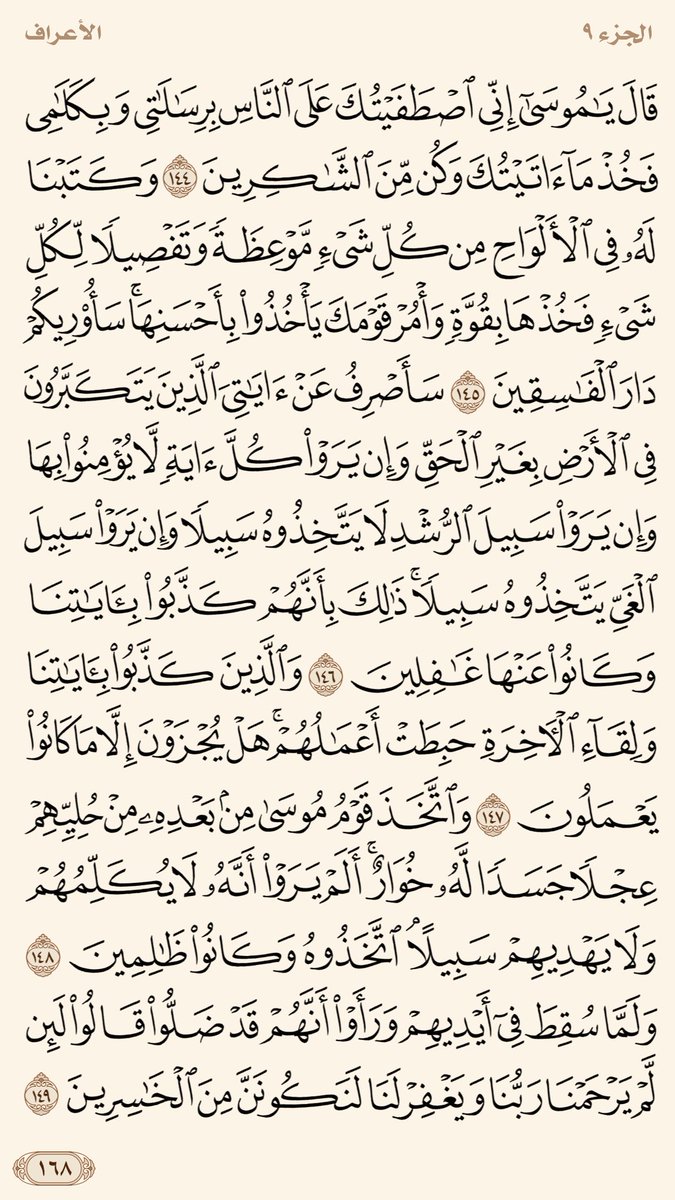 الجزء ٩
الأعراف
قَالَ يَـٰمُوسَىٰٓ إِنِّى ٱصْطَفَيْتُكَ عَلَى ٱلنَّاسِ بِرِسَـٰلَـٰتِى وَبِكَلَـٰمِى
فَخُذْ مَآ ءَاتَيْتُكَ وَكُن مِّنَ ٱلشَّـٰكِرِينَ ١٤٤ وَكَتَبْنَا
لَهُۥ فِى ٱلْأَلْوَاحِ مِن كُلِّ شَىْءٍ مَّوْعِظَةً وَتَفْصِيلًا لِّكُلِّ
شَىْءٍ فَخُذْهَا بِقُوَّةٍ وَأْمُرْ قَوْمَكَ يَأْخُذُوا۟ بِأَحْسَنِهَا ۚ سَأُو۟رِيكُمْ
دَارَ ٱلْفَـٰسِقِينَ ١٤٥ سَأَصْرِفُ عَنْ ءَايَـٰتِىَ ٱلَّذِينَ يَتَكَبَّرُونَ
فِى ٱلْأَرْضِ بِغَيْرِ ٱلْحَقِّ وَإِن يَرَوْا۟ كُلَّ ءَايَةٍ لَّا يُؤْمِنُوا۟ بِهَا
وَإِن يَرَوْا۟ سَبِيلَ ٱلرُّشْدِ لَا يَتَّخِذُوهُ سَبِيلًا وَإِن يَرَوْا۟ سَبِيلَ
ٱلْغَىِّ يَتَّخِذُوهُ سَبِيلًا ۚ ذَٰلِكَ بِأَنَّهُمْ كَذَّبُوا۟ بِـَٔايَـٰتِنَا
وَكَانُوا۟ عَنْهَا غَـٰفِلِينَ ١٤٦ وَٱلَّذِينَ كَذَّبُوا۟ بِـَٔايَـٰتِنَا
وَلِقَآءِ ٱلْـَٔاخِرَةِ حَبِطَتْ أَعْمَـٰلُهُمْ ۚ هَلْ يُجْزَوْنَ إِلَّا مَا كَانُوا۟
يَعْمَلُونَ ١٤٧ وَٱتَّخَذَ قَوْمُ مُوسَىٰ مِنۢ بَعْدِهِۦ مِنْ حُلِيِّهِمْ
عِجْلًا جَسَدًا لَّهُۥ خُوَارٌ ۚ أَلَمْ يَرَوْا۟ أَنَّهُۥ لَا يُكَلِّمُهُمْ
وَلَا يَهْدِيهِمْ سَبِيلًا ۘ ٱتَّخَذُوهُ وَكَانُوا۟ ظَـٰلِمِينَ ١٤٨
وَلَمَّا سُقِطَ فِىٓ أَيْدِيهِمْ وَرَأَوْا۟ أَنَّهُمْ قَدْ ضَلُّوا۟ قَالُوا۟ لَئِن
لَّمْ يَرْحَمْنَا رَبُّنَا وَيَغْفِرْ لَنَا لَنَكُونَنَّ مِنَ ٱلْخَـٰسِرِينَ ١٤٩
١٦٨